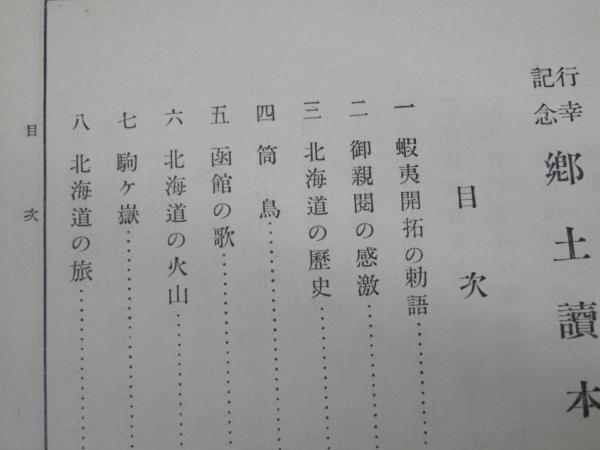 行幸
記念
鄕土讀本
目次
一 蝦夷開拓の勅語
二 御親閱の感激
三 北海道の歷史
四 筒鳥
五 函館の歌
六 北海道の火山
七 駒ヶ嶽
八 北海道の旅
目次